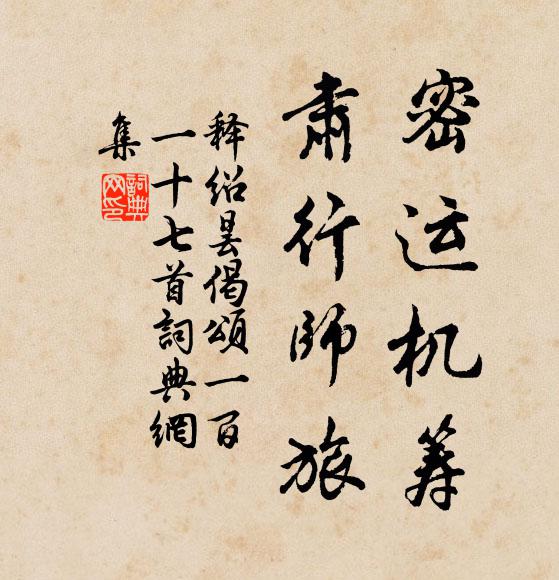 密运机筹
肃行師旅
释绍昙偈頌一百
一十七首詞典網
集
詞典
网印